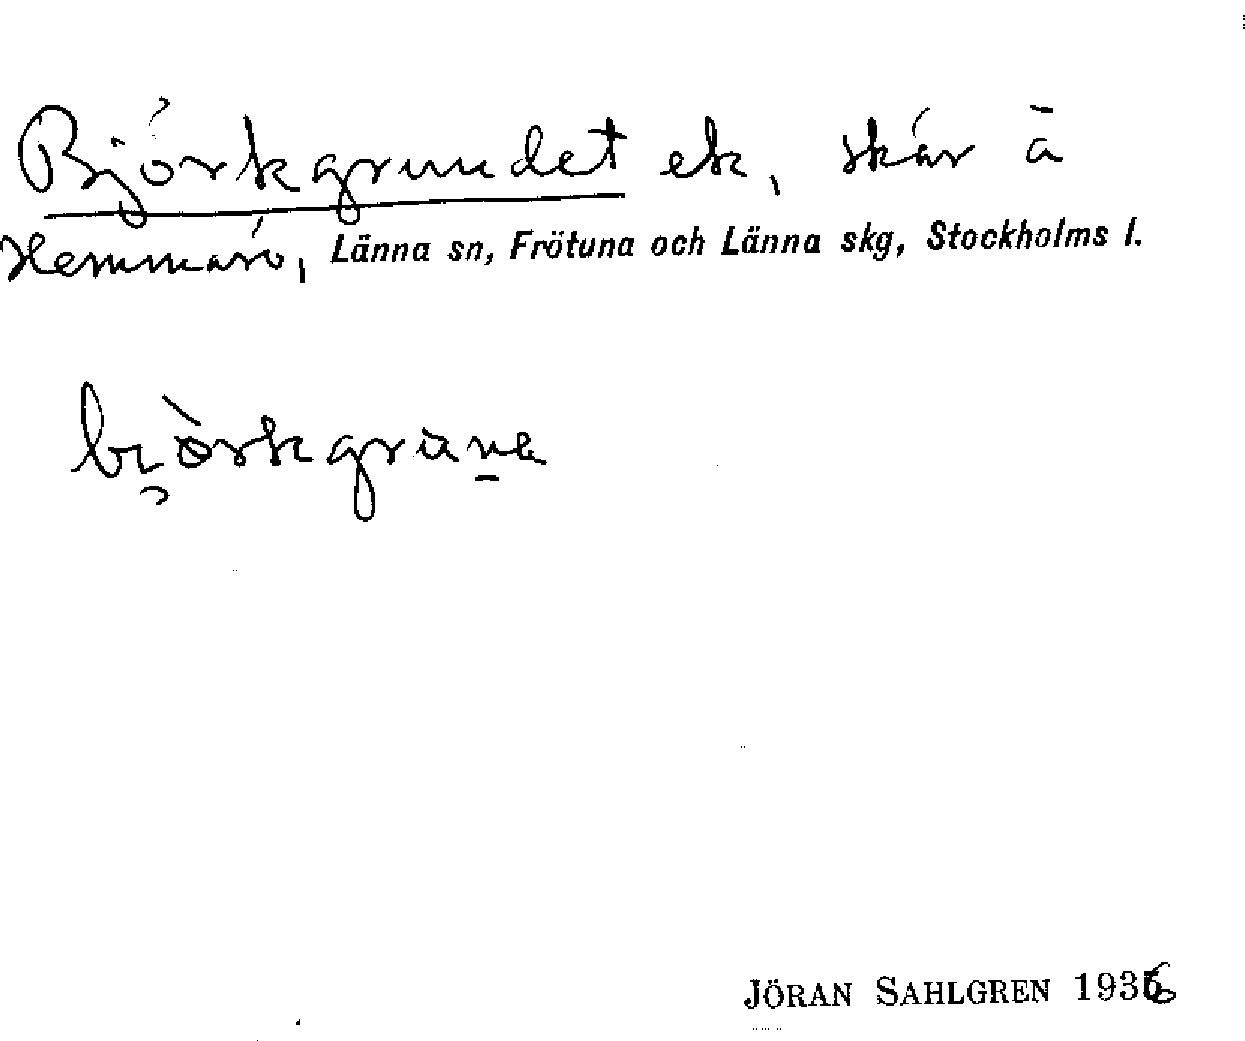 Björkgrundet ek, skär å
Hemmarö, Länna sn, Frötuna och Länna skg, Stockholms l.
bi̯òrkgrun̠a
JÖRAN SAHLGREN 1936